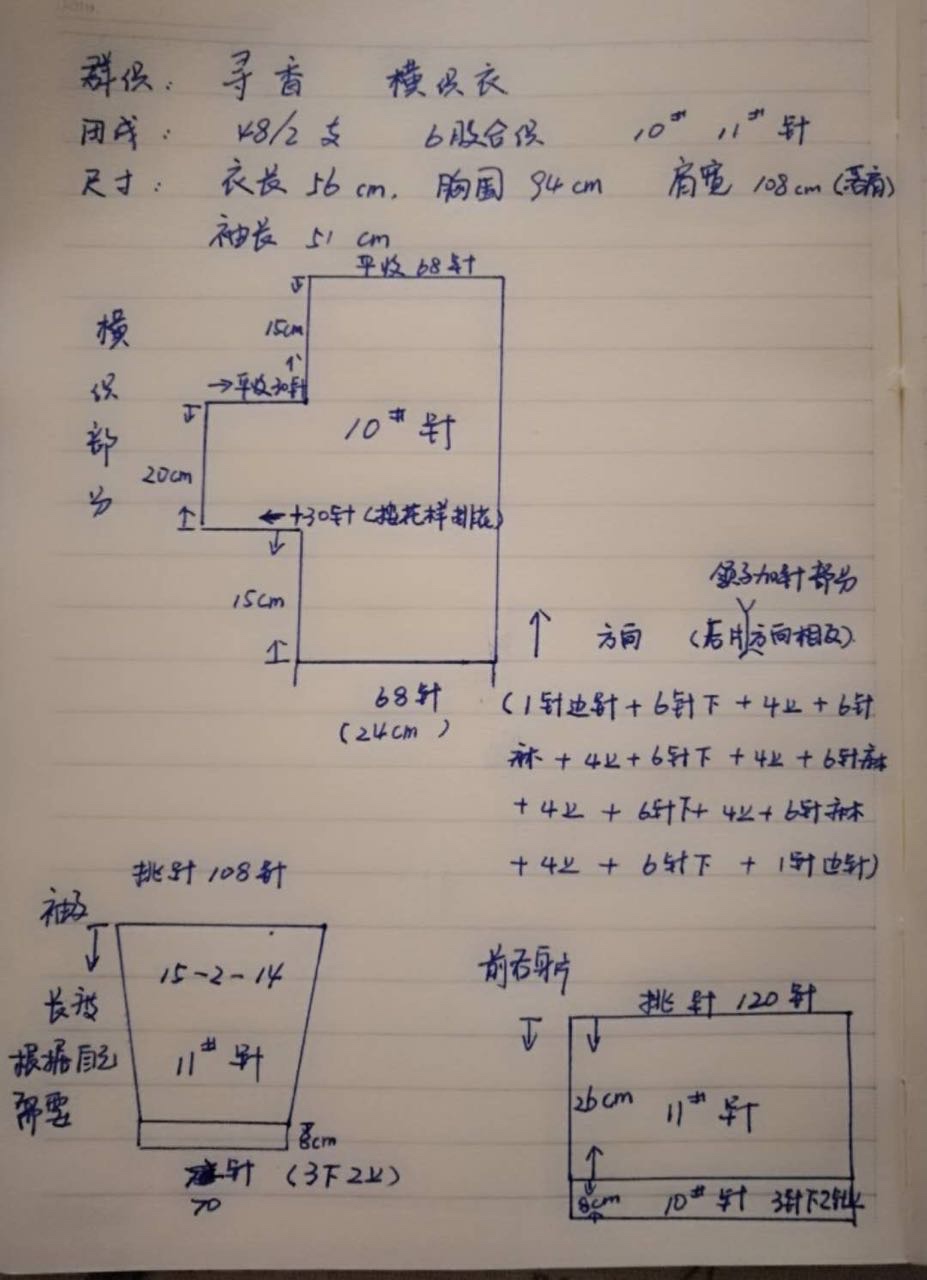 群织： 寻香 横织衣
用线： 48/2 支 6股合织 10# 11# 针
尺寸： 衣长 56 cm. 胸围 94 cm 肩宽 108 cm (落肩)
袖长 51 cm
平收 68 针
15cm
横织部分
→平收30针
10# 针
20cm
← +30针 (按花样排花)
15cm
领子加针部分
方向 (后片方向相反)
68针
(24cm)
(1针边针 + 6针下 + 4上 + 6针
麻 + 4上 + 6针下 + 4上 + 6针麻
+ 4上 + 6针下 + 4上 + 6针麻
+ 4上 + 6针下 + 1针边针)
挑针 108针
袖子
15-2-14
长度
根据自己
需要
11# 针
8cm
针 (3下2上)
70
前后身片
挑针 120针
26cm
11# 针
8cm 10# 针 3针下2针上